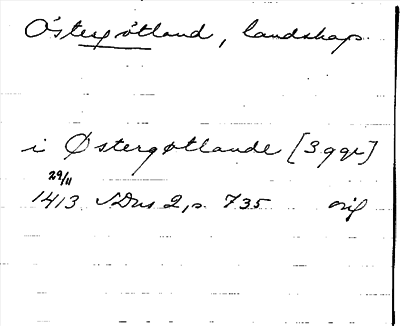 Östergötland, landskap.
i Østergøtlande [3 ggr]
29/11
1413 SDns 2, s. 735 orig